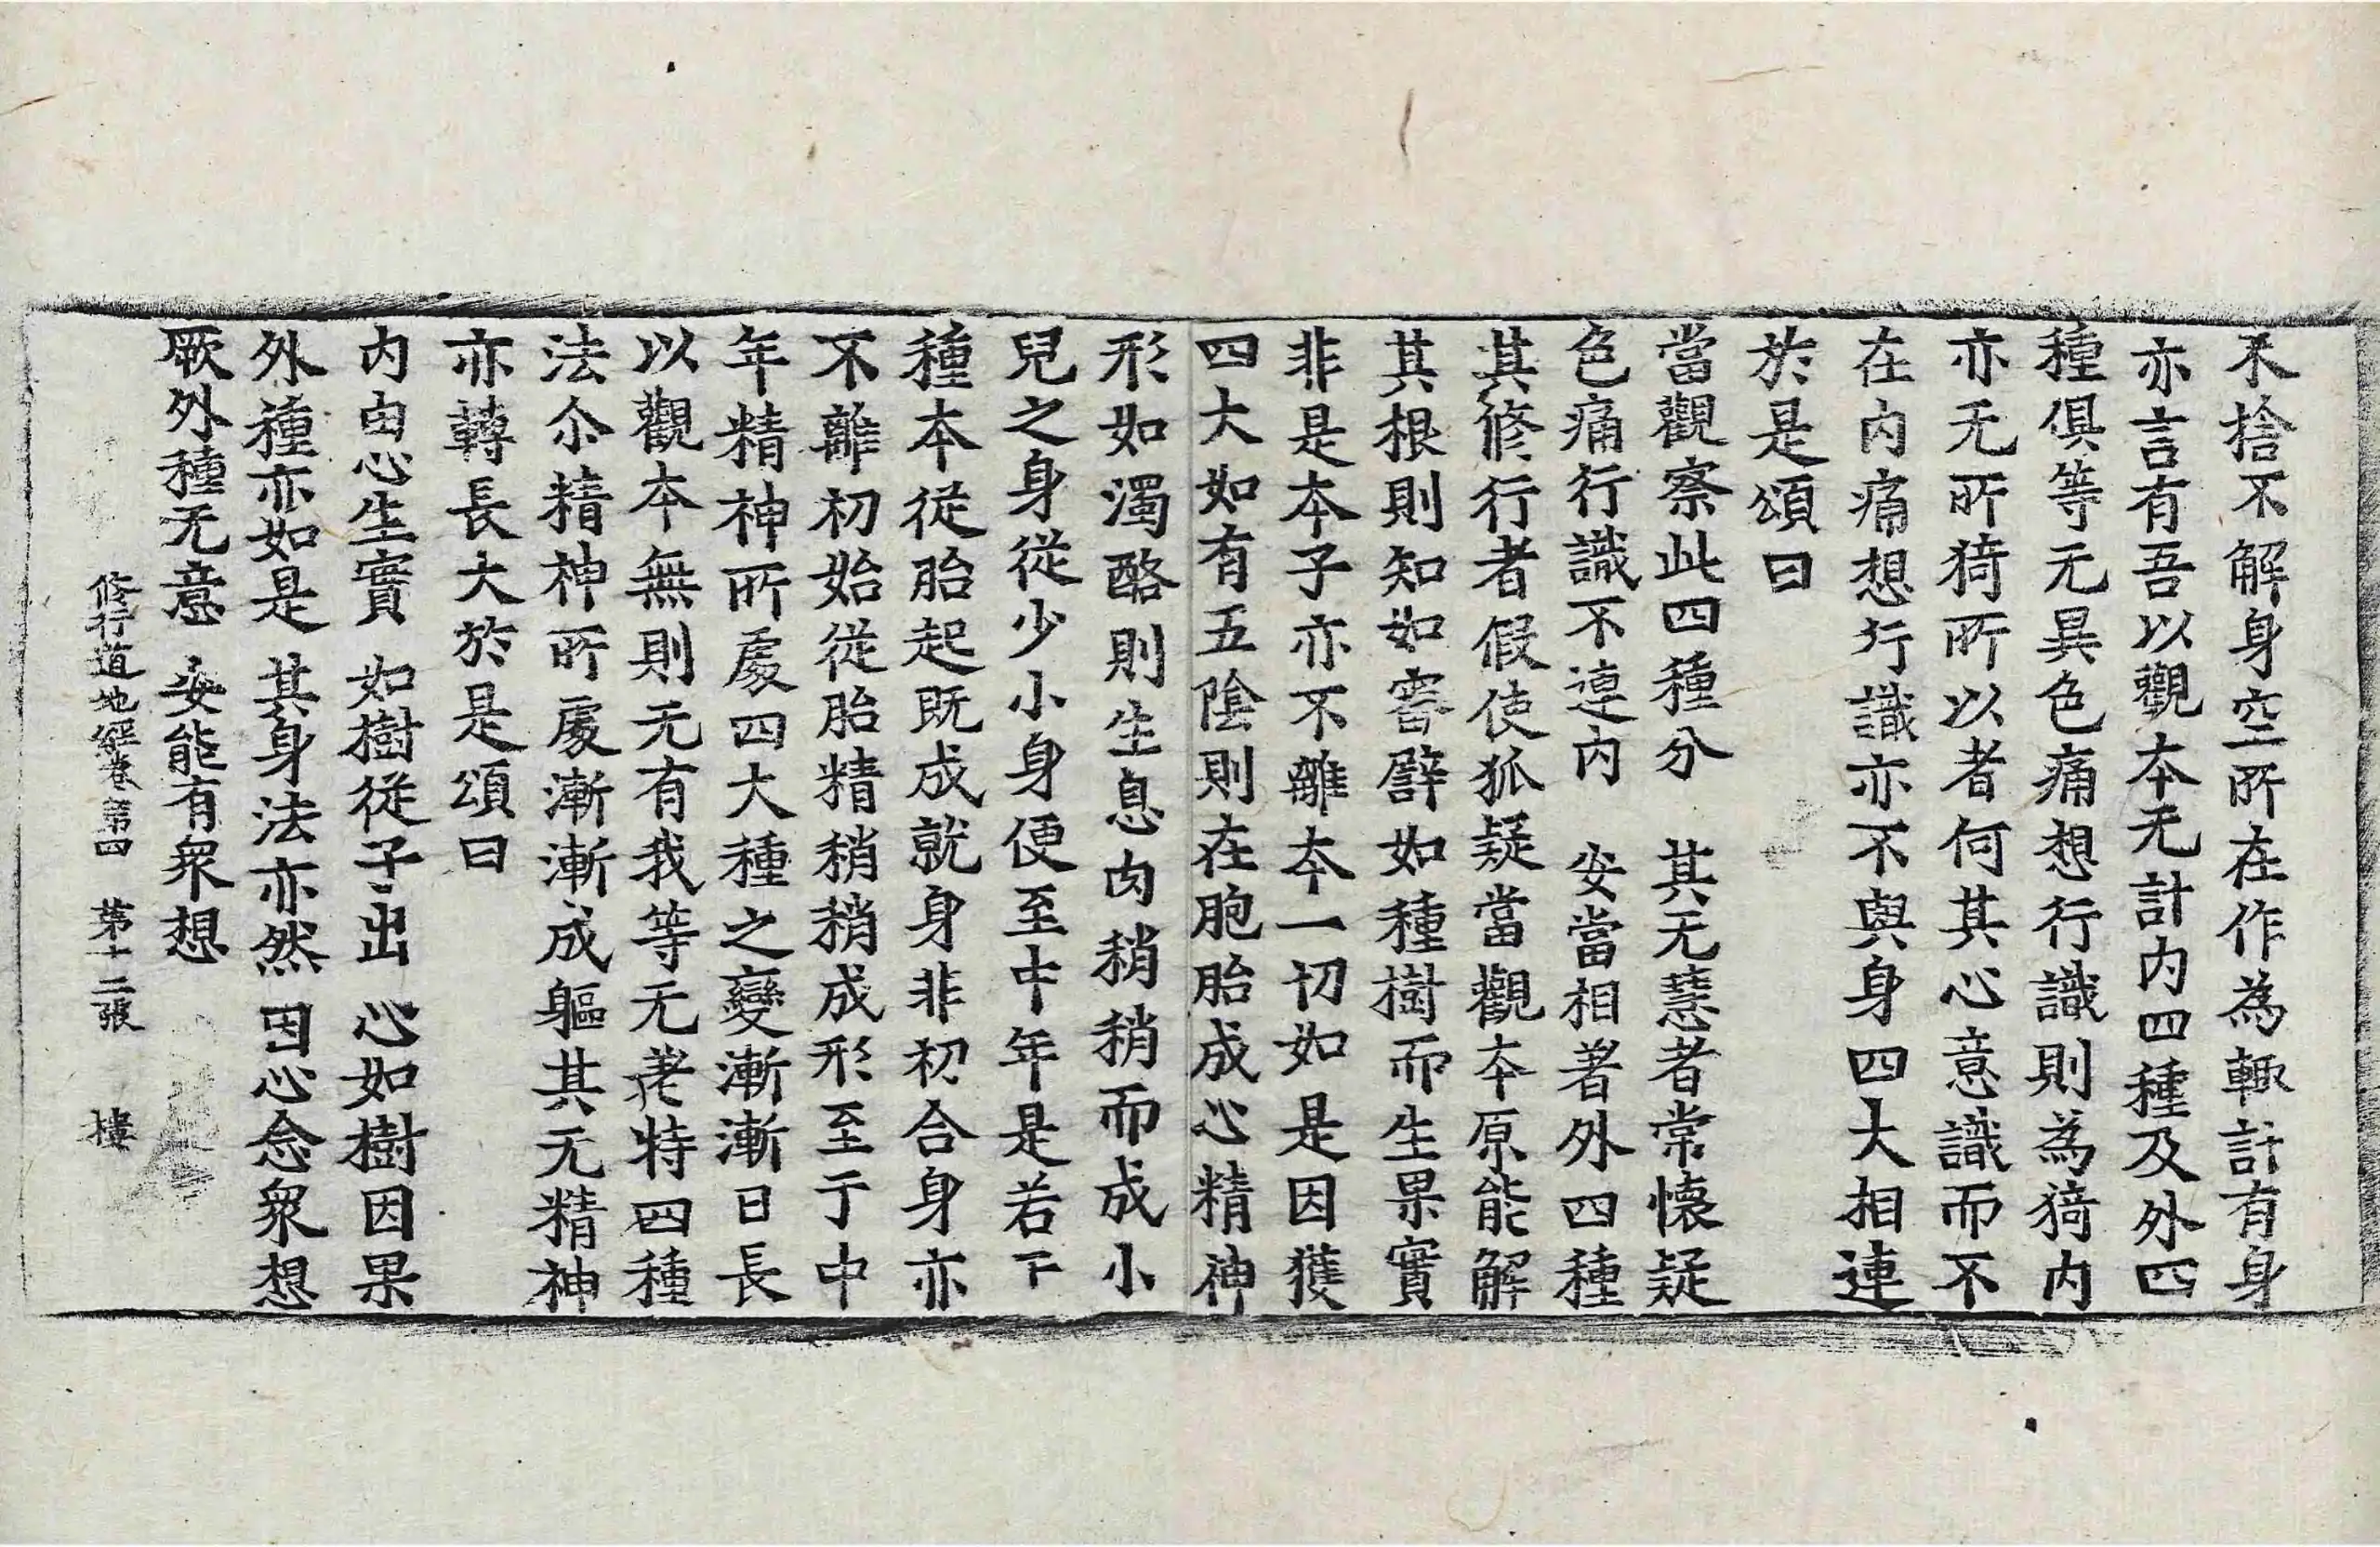 不捨不解身空所在作為輙計有身
亦言有吾以觀本无計內四種及外四
種俱等无異色痛想行識則為猗內
亦无所猗所以者何其心意識而不
在內痛想行識亦不與身四大相連
於是頌曰
當觀察此四種分　其无慧者常懷疑
色痛行識不連內　安當相著外四種
其修行者假使狐疑當觀本原能解
其根則知如審譬如種樹而生果實
非是本子亦不離本一切如是因獲
四大如有五陰則在胞胎成心精神
形如濁酪則生息肉稍稍而成小
兒之身從少小身便至中年是若干
種本從胎起既成就身非初合身亦
不離初始從胎精稍稍成形至于中
年精神所處四大種之變漸漸日長
以觀本無則无有我等无差特四種
法尒精神所處漸漸成軀其无精神
亦轉長大於是頌曰
內因心生實　如樹從子出　心如樹因果
外種亦如是　其身法亦然　因心念衆想
厥外種无意　安能有衆想
修行道地經卷第四　第十二張　樓